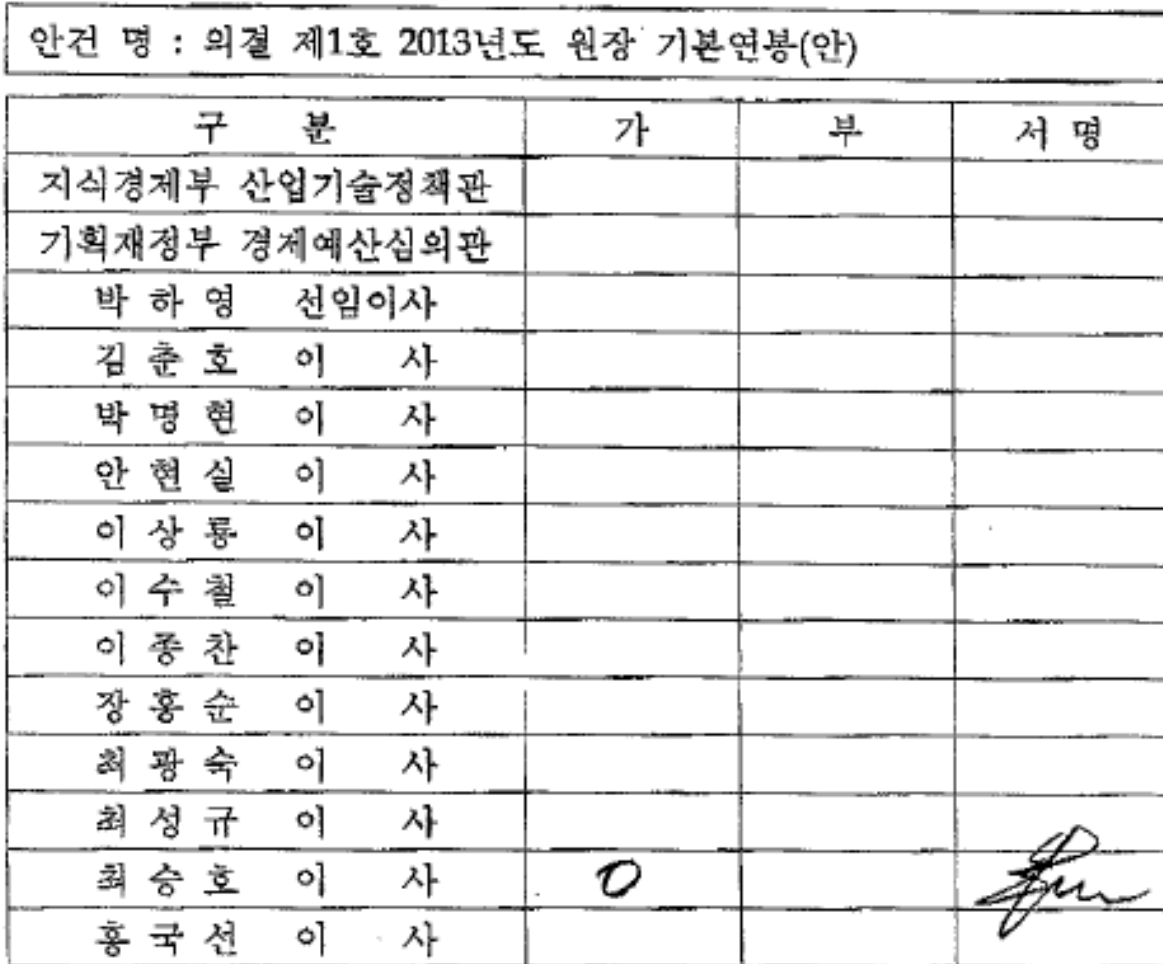 안건 명 : 의결 제1호 2013년도 원장 기본연봉(안)
구 분 가 부 서 명
지식경제부 산업기술정책관
기획재정부 경제예산심의관
박 하 영 선임이사
김 춘 호 이 사
박 명 현 이 사
안 현 실 이 사
이 상 룡 이 사
이 수 철 이 사
이 종 찬 이 사
장 흥 순 이 사
최 광 숙 이 사
최 성 규 이 사
최 승 호 이 사 O
홍 국 선 이 사